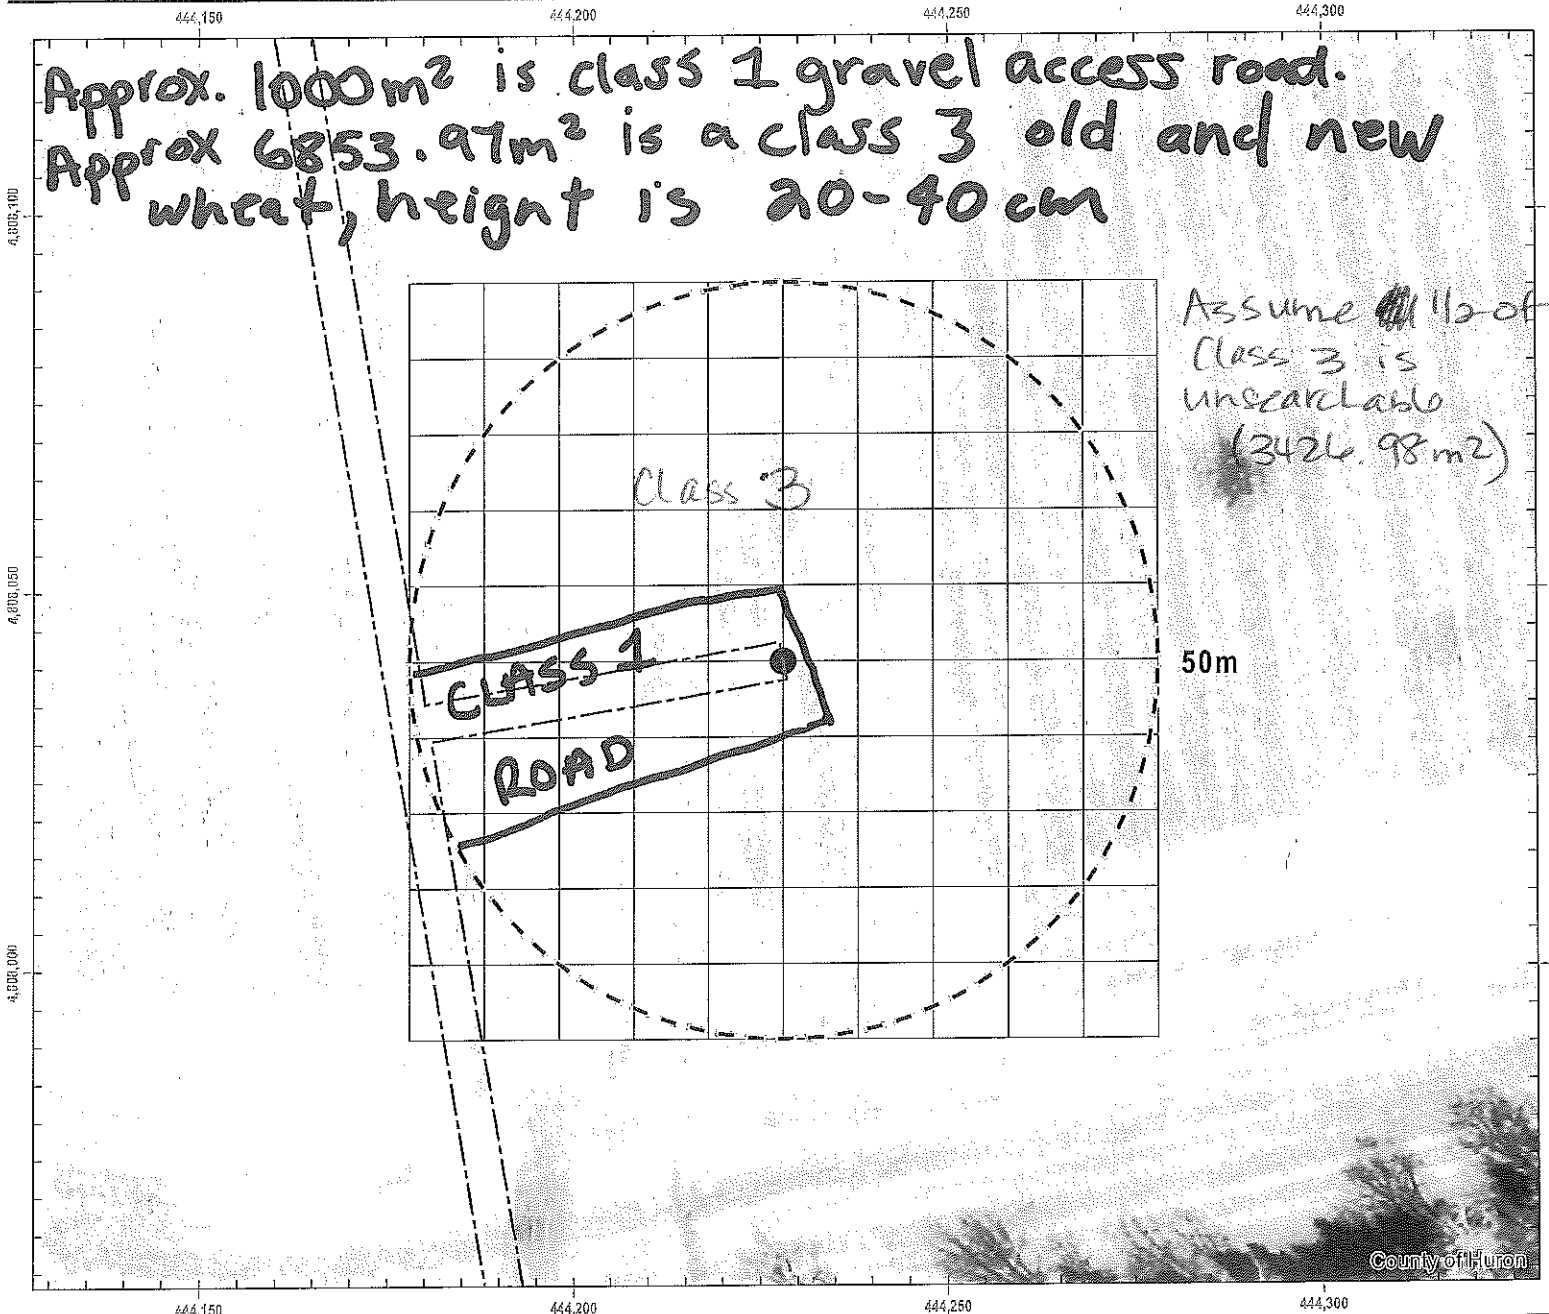 444,150 444,200 444,250 444,300
Approx. 1000m² is class 1 gravel access road.
Approx 6853.97m² is a class 3 old and new
wheat, height is 20-40 cm
4,808,100
Assume 1/2 of
Class 3 is
unsearchable
(3426.98m2)
Class 3
4,808,050
CLASS 1
50m
ROAD
4,808,000
County of Huron
444,150 444,200 444,250 444,300